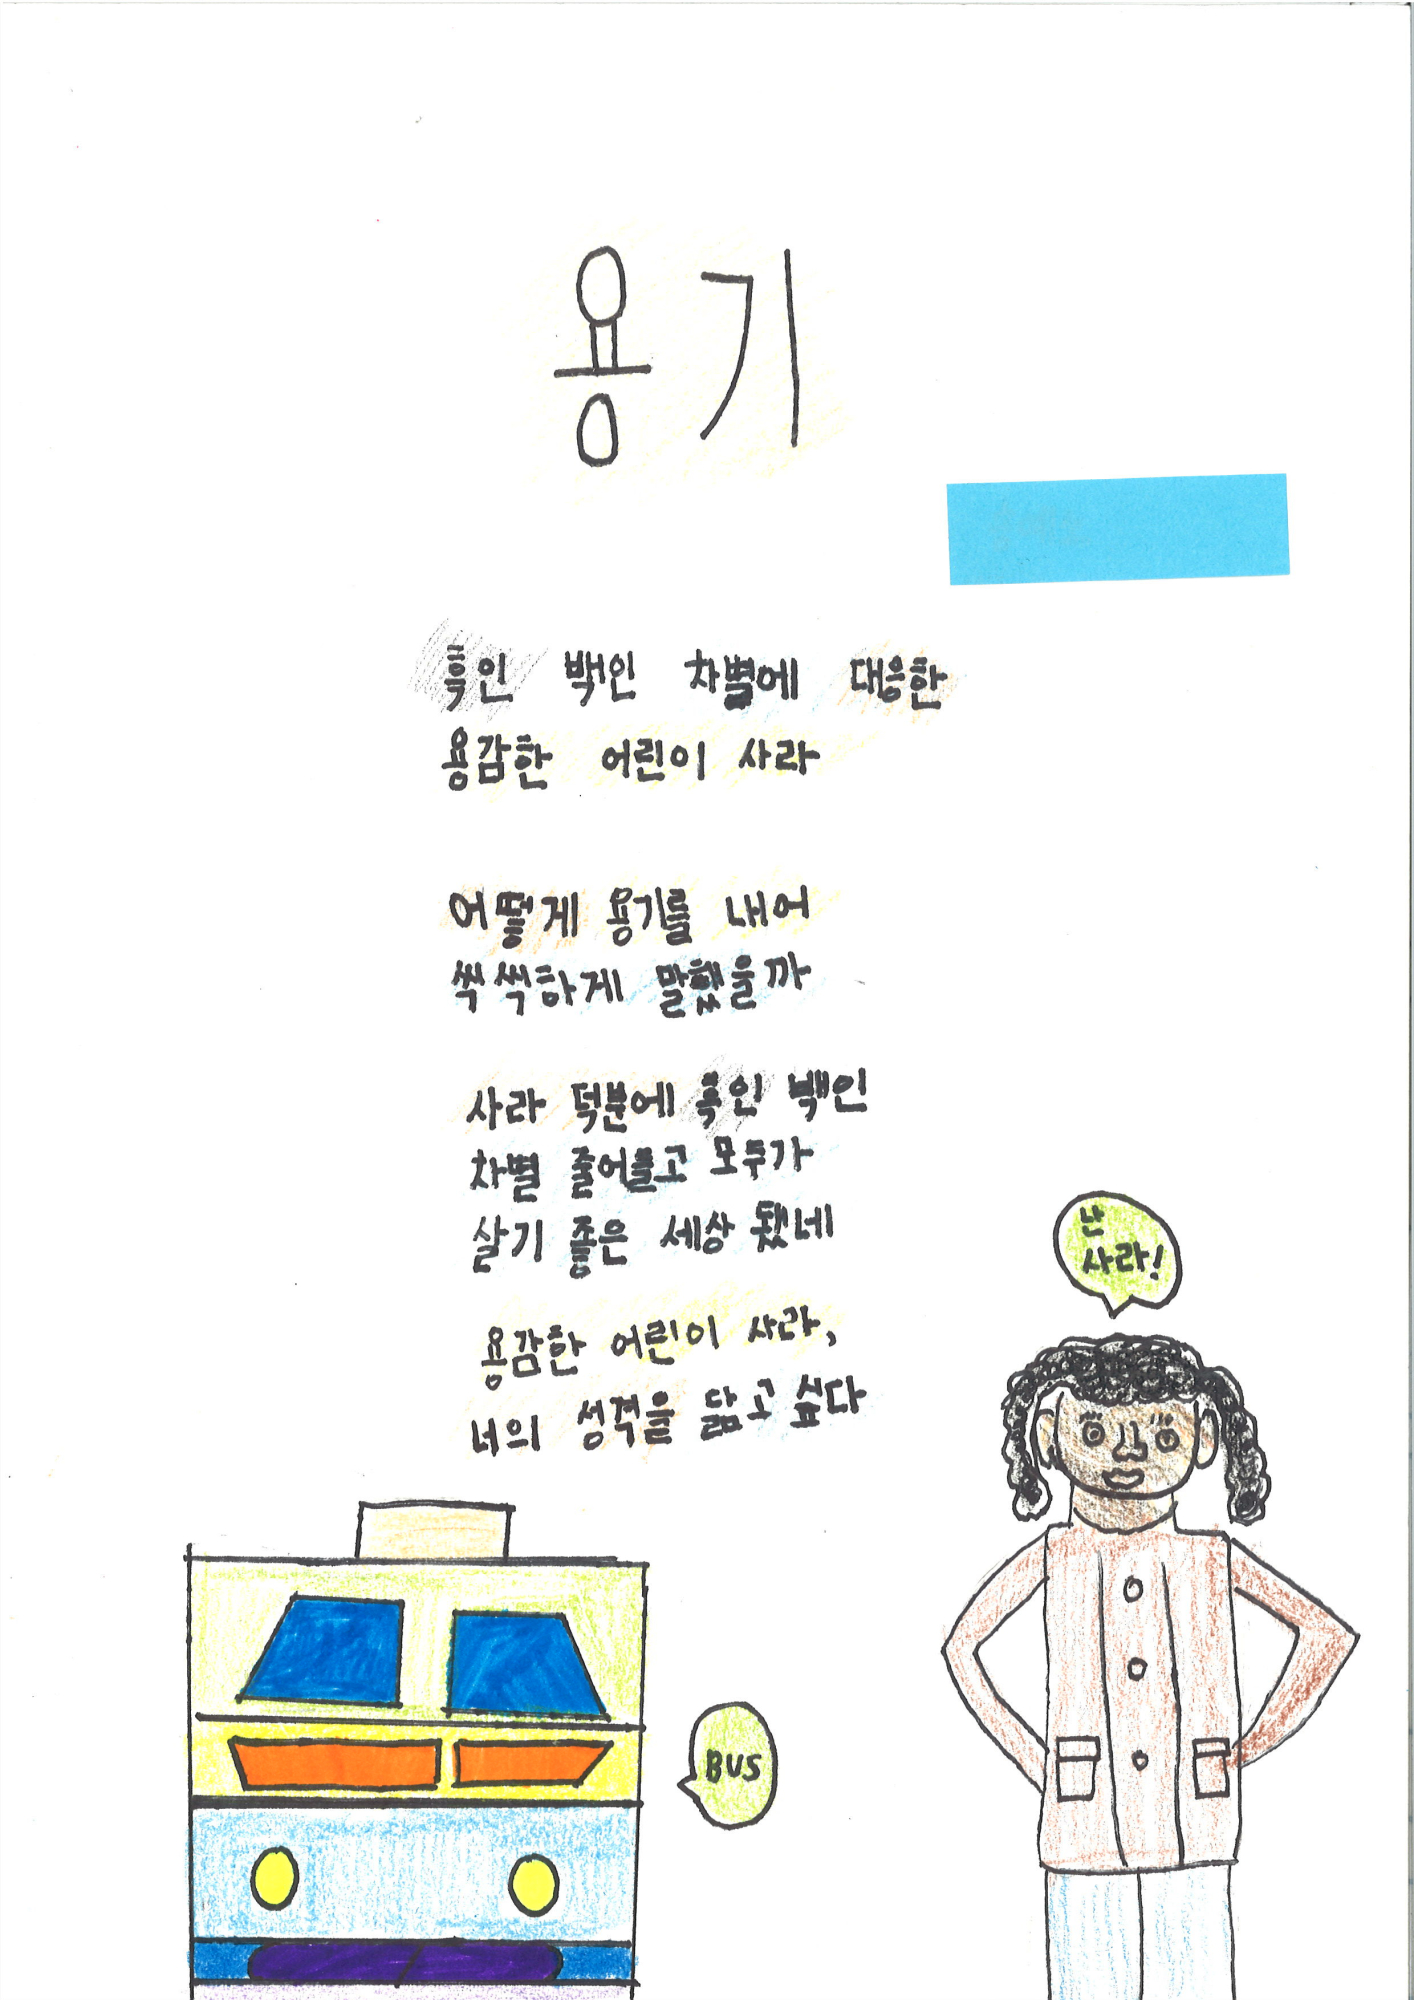 용기
흑인 백인 차별에 대응한
용감한 어린이 사라
어떻게 용기를 내어
씩씩하게 말했을까
사라 덕분에 흑인 백인
차별 줄어들고 모두가
살기 좋은 세상 됐네
용감한 어린이 사라,
너의 성격을 닮고 싶다
난
사라!
BUS